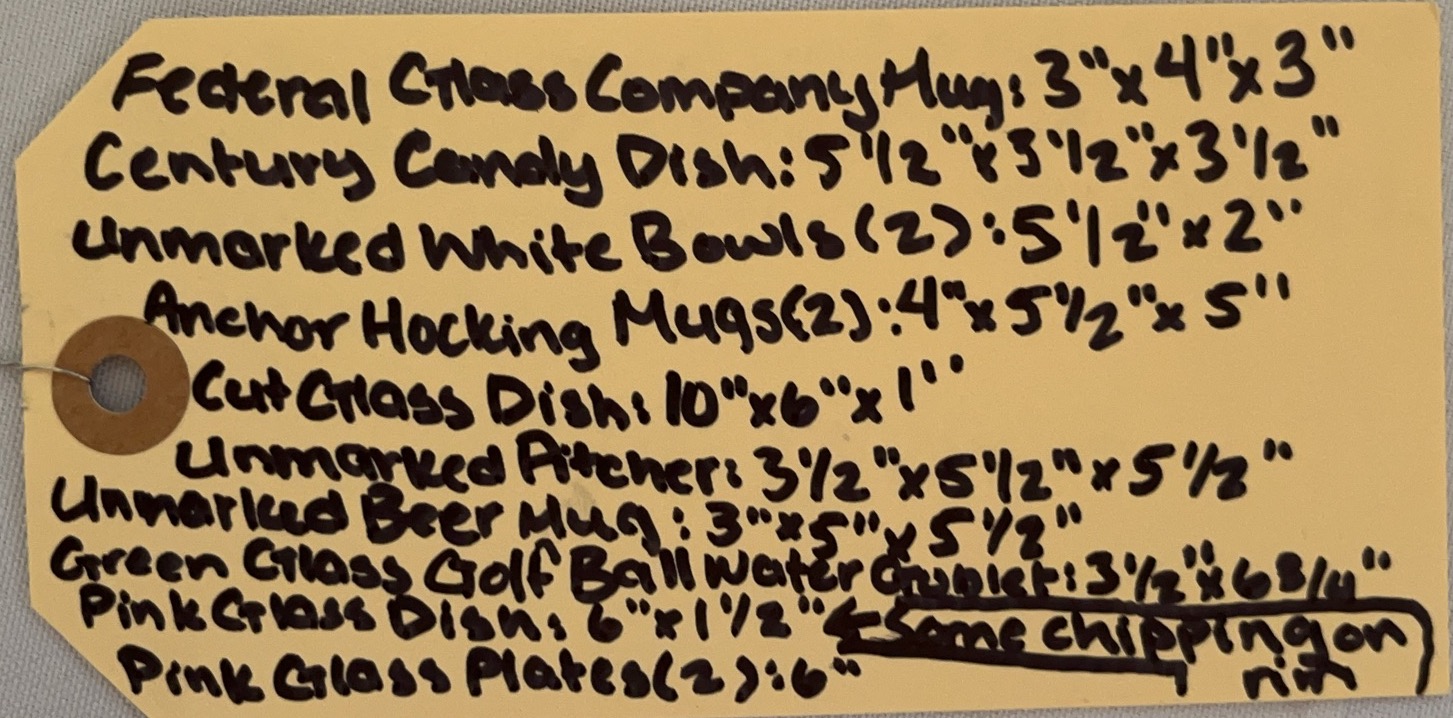 Federal Glass Company Mug: 3"x4"x3"
Century Candy Dish: 5 1/2"x3 1/2"x3 1/2"
Unmarked White Bowls(2): 5 1/2"x2"
Anchor Hocking Mugs(2): 4"x5 1/2"x5"
Cut Glass Dish: 10"x6"x1"
Unmarked Pitcher: 3 1/2"x5 1/2"x5 1/2"
Unmarked Beer Mug: 3"x5"x5 1/2"
Green Glass Golf Ball Water Goblet: 3 1/2"x6 3/4"
Pink Glass Dish: 6"x1 1/2" ← Some chipping on
rim
Pink Glass Plates(2): 6"